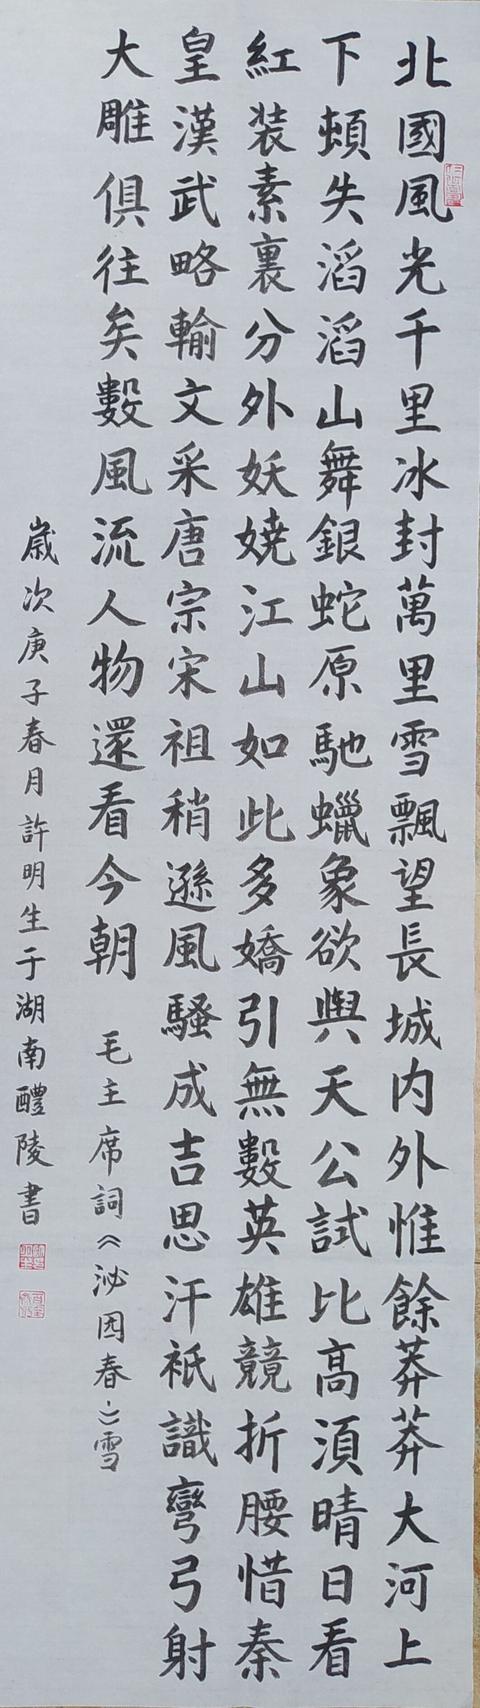 北國風光千里冰封萬里雪飄望長城内外惟餘莽莽大河上
下頓失滔滔山舞銀蛇原馳蠟象欲與天公試比高須晴日看
紅装素裹分外妖嬈江山如此多嬌引無數英雄競折腰惜秦
皇漢武略輸文采唐宗宋祖稍遜風騷成吉思汗祇識彎弓射
大雕俱往矣數風流人物還看今朝
毛主席詞《沁园春·雪
歲次庚子春月許明生于湖南醴陵書